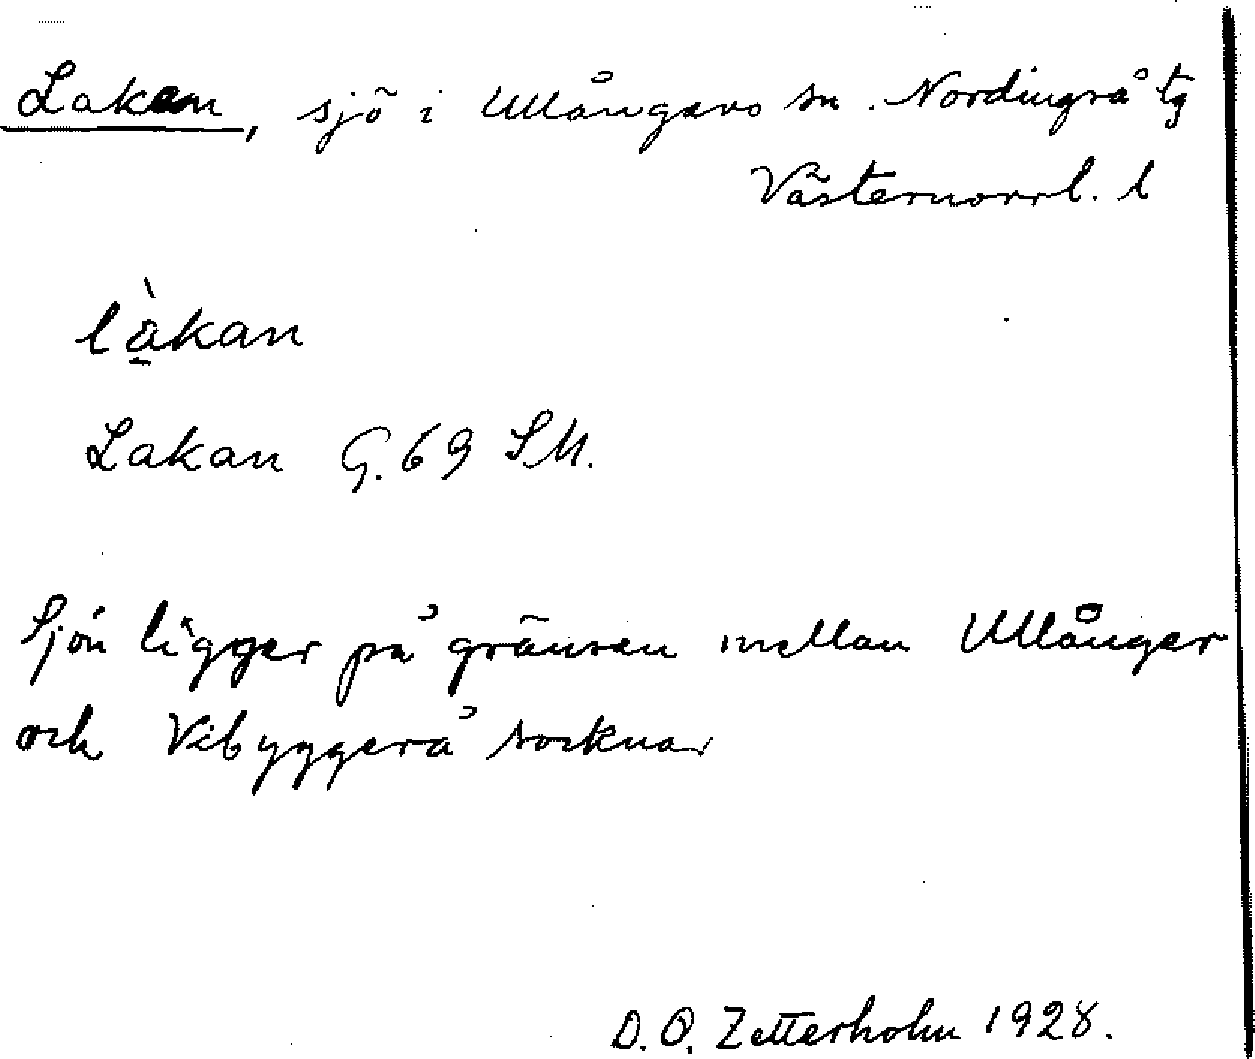 Lakan, sjö i Ullångers sn. Nordingrå tg
Västernorrl. l
là̱kan
Lakan G. 69 SM.
Sjön ligger på gränsen mellan Ullånger
och Vibyggerå socknar
D. O. Zetterholm 1928.